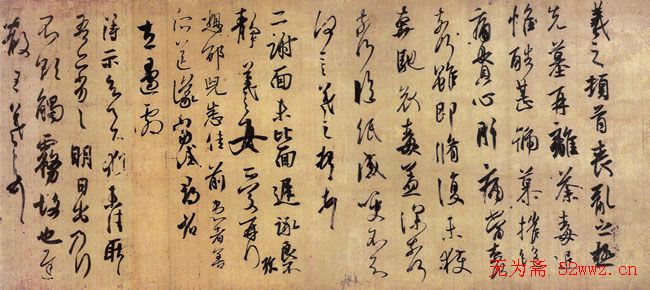 羲之頓首喪亂之極
先墓再離荼毒追
惟酷甚號慕摧絶
痛貫心肝痛當奈何
奈何雖即脩復未獲
奔馳哀毒益深奈何
奈何臨紙感哽不知
何言羲之頓首頓首
二謝面未比面遲詠良不
靜羲之女愛再拜
想邰兒悉佳前患者善
所送議當試尋省
左邊劇
得示知足下猶未佳耿耿
吾亦劣劣明日出乃行
不欲觸霧故也遲
散王羲之頓首
龙为斋 52wwz.cn